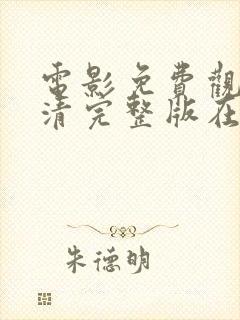 電影免費觀
清完整版在
朱德明